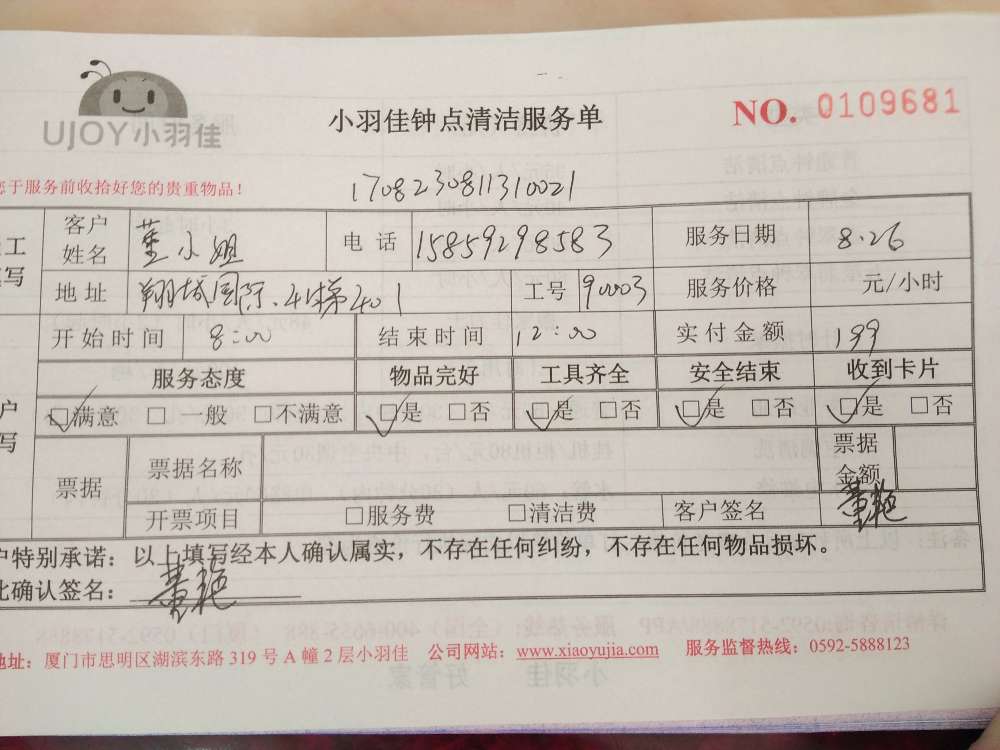 UJOY小羽佳
小羽佳钟点清洁服务单
NO. 0109681
您于服务前收拾好您的贵重物品！
1708230811310021
工
填写
客户姓名 董小姐 电话 15859298583 服务日期 8.26
地址 翔城国际.41梯401 工号 90003 服务价格 元/小时
开始时间 8:00 结束时间 12:00 实付金额 199
服务态度 物品完好 工具齐全 安全结束 收到卡片
户
写
☑满意 □一般 □不满意 ☑是 □否 ☑是 □否 ☑是 □否 ☑是 □否
票据 票据名称 票据金额
开票项目 □服务费 □清洁费 客户签名 董艳
户特别承诺：以上填写经本人确认属实，不存在任何纠纷，不存在任何物品损坏。
此确认签名： 董艳
地址：厦门市思明区湖滨东路 319 号 A 幢 2 层小羽佳 公司网站：www.xiaoyujia.com 服务监督热线：0592-5888123